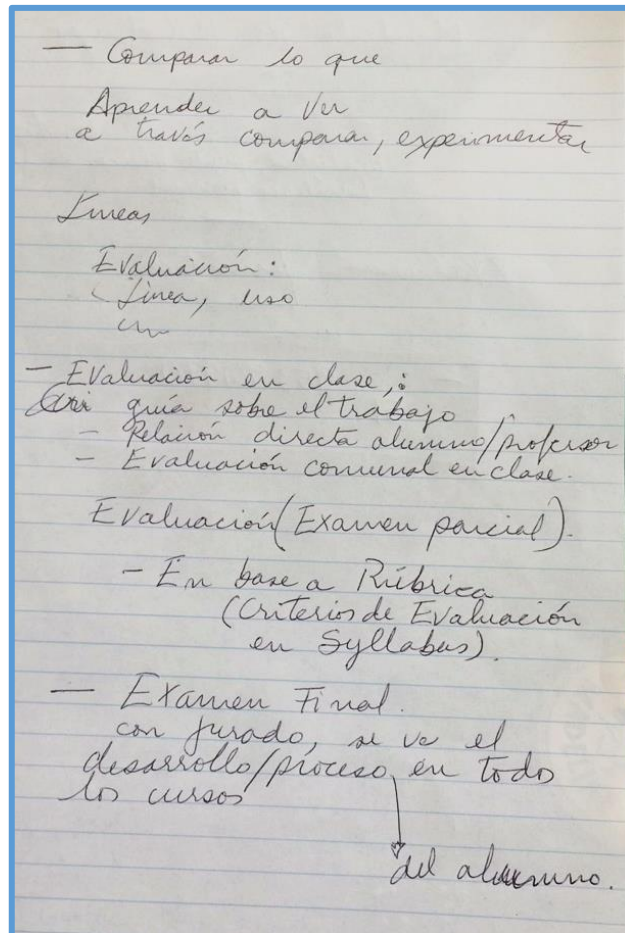 — Comparar lo que
Aprender a Ver
a través comparar, experimentar
Líneas
Evaluación:
Línea, uso
- Evaluación en clase,:
guía sobre el trabajo
- Relación directa alumno/profesor
- Evaluación comunal en clase.
Evaluación (Examen parcial).
- En base a Rúbrica
(Criterios de Evaluación
en Syllabus).
— Examen Final.
con jurado, se ve el
desarrollo/proceso en todo
los cursos
del alumno.